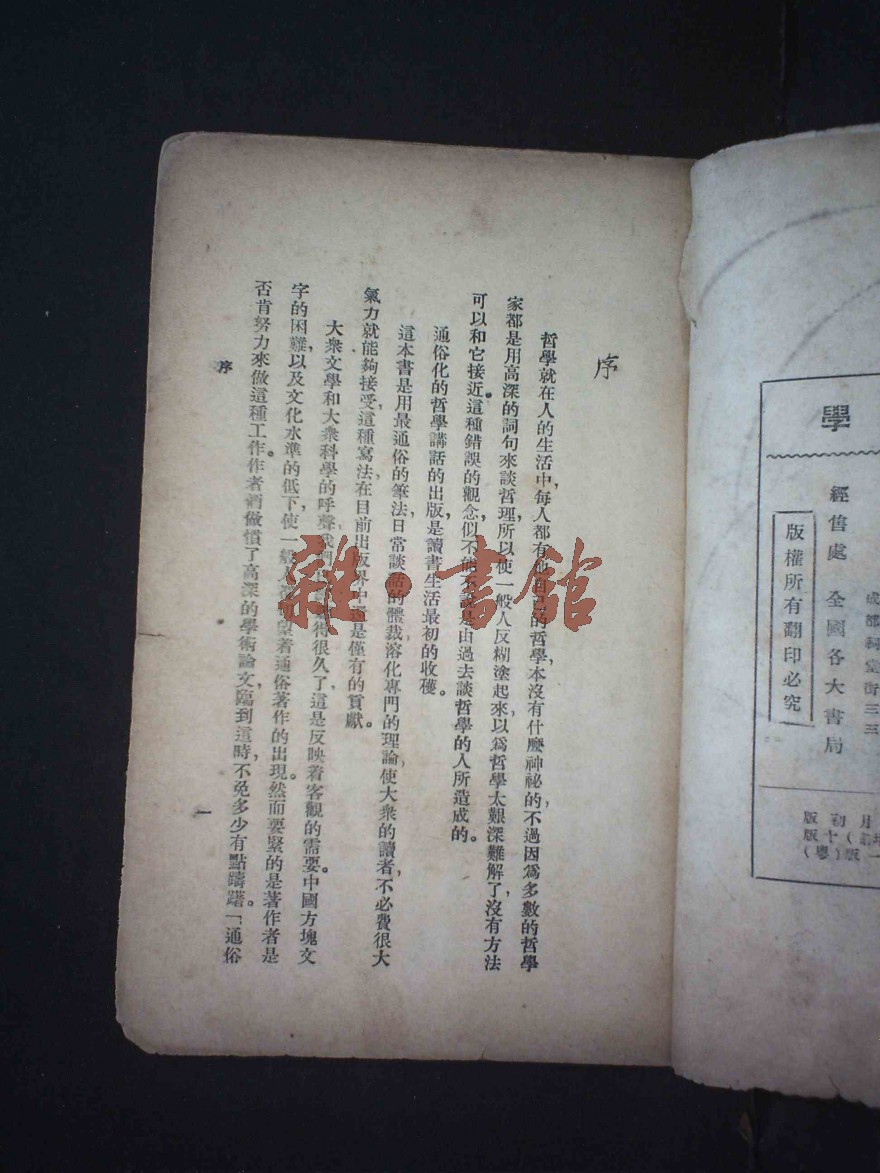 學
成都祠堂街三三
經售處 全國各大書局
版權所有翻印必究
序
哲學就在人的生活中,每人都有他自己的哲學,本沒有什麼神祕的,不過因爲多數的哲學
家都是用高深的詞句來談哲理,所以使一般人反糊塗起來,以爲哲學太艱深難解了,沒有方法
可以和它接近。這種錯誤的觀念,似不能不說是由過去談哲學的人所造成的。
通俗化的哲學講話的出版,是讀書生活最初的收穫。
這本書是用最通俗的筆法,日常談話的體裁,溶化專門的理論,使大衆的讀者,不必費很大
氣力就能夠接受,這種寫法在目前出版界中還是僅有的貢獻。
大衆文學和大衆科學的呼聲,我們得很久了,這是反映着客觀的需要。中國方塊文
字的困難,以及文化水準的低下,使一般人望着通俗著作的出現。然而要緊的是著作者是
否肯努力來做這種工作。作者們做慣了高深的學術論文,臨到這時,不免多少有點躊躇。「通俗
序
一
雜·書館